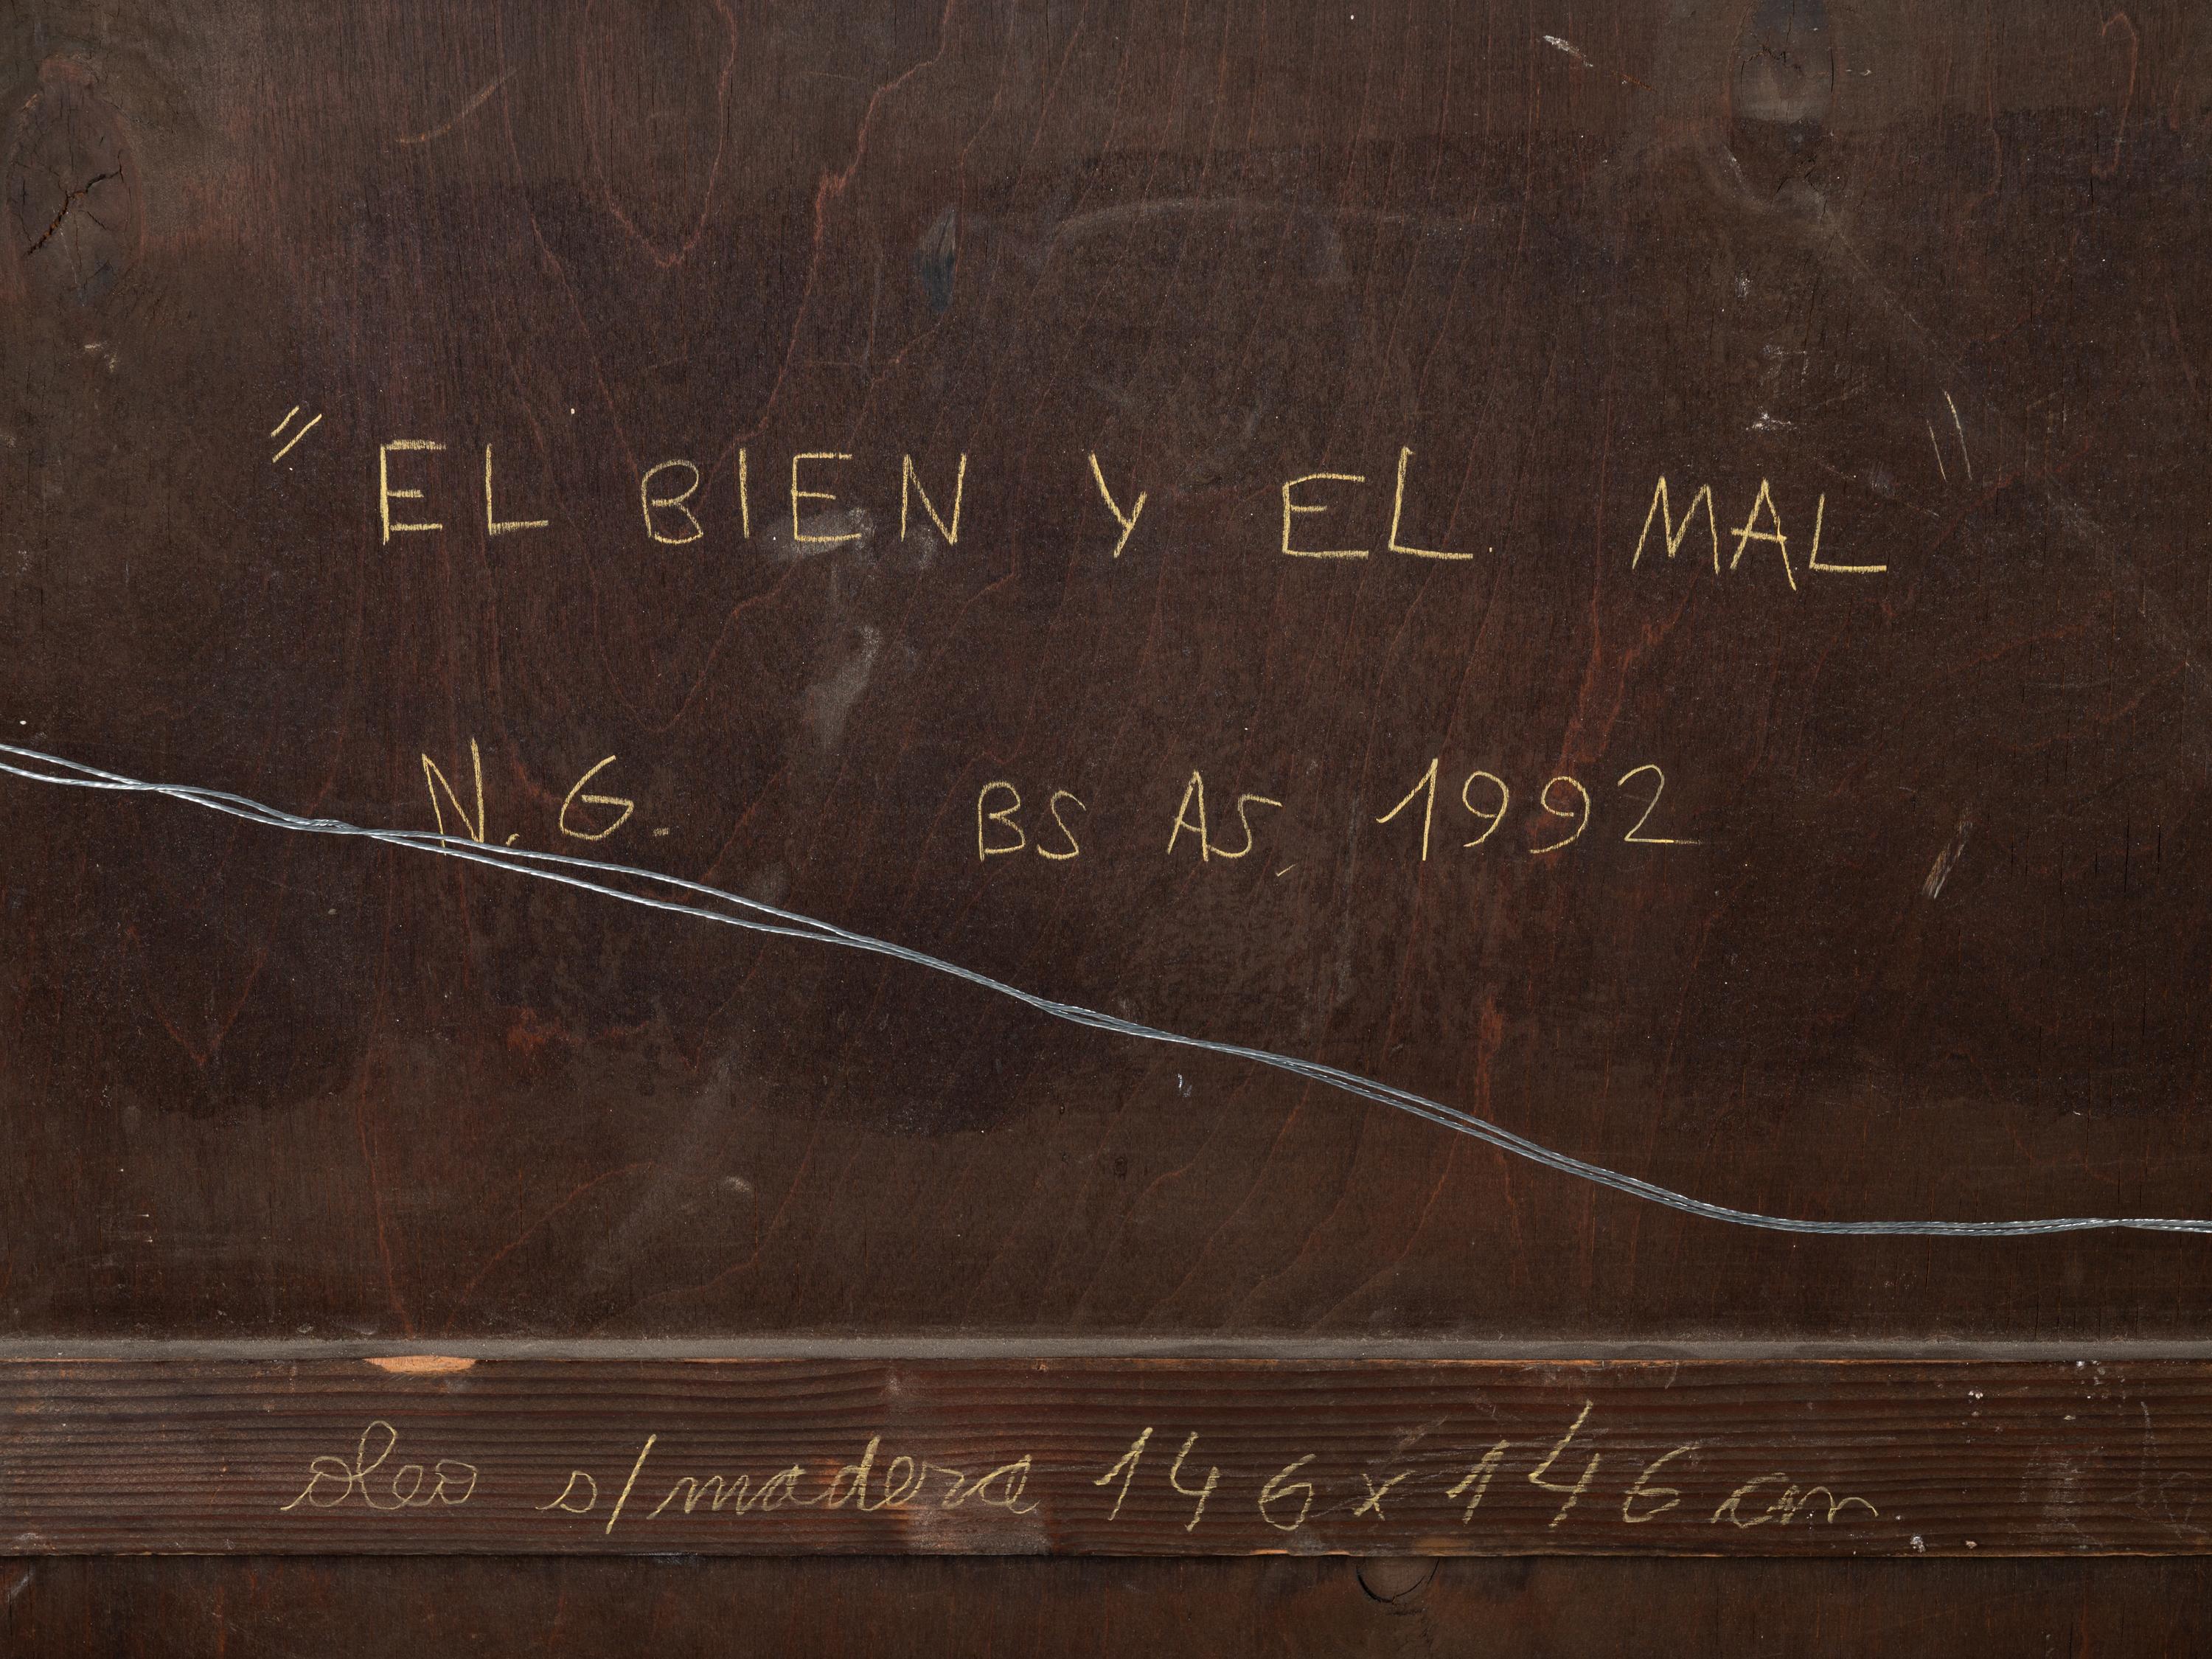 "EL BIEN Y EL MAL"
N. G. BS AS. 1992
oleo s/madera 146 x 146 cm